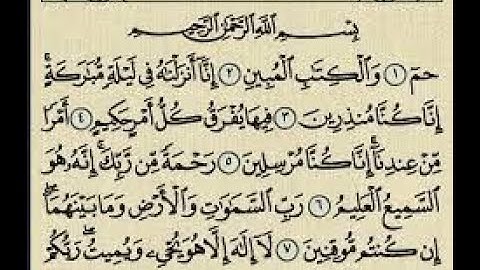 بِسْمِ اللَّهِ الرَّحْمَٰنِ الرَّحِيمِ
حمٓ ١ وَالْكِتَابِ الْمُبِينِ ٢ إِنَّا أَنزَلْنَاهُ فِي لَيْلَةٍ مُّبَارَكَةٍ ۚ
إِنَّا كُنَّا مُنذِرِينَ ٣ فِيهَا يُفْرَقُ كُلُّ أَمْرٍ حَكِيمٍ ٤ أَمْرًا
مِّنْ عِندِنَا ۚ إِنَّا كُنَّا مُرْسِلِينَ ٥ رَحْمَةً مِّن رَّبِّكَ ۚ إِنَّهُ هُوَ
السَّمِيعُ الْعَلِيمُ ٦ رَبِّ السَّمَاوَاتِ وَالْأَرْضِ وَمَا بَيْنَهُمَا ۖ
إِن كُنتُم مُّوقِنِينَ ٧ لَا إِلَٰهَ إِلَّا هُوَ يُحْيِي وَيُمِيتُ ۖ رَبُّكُمْ